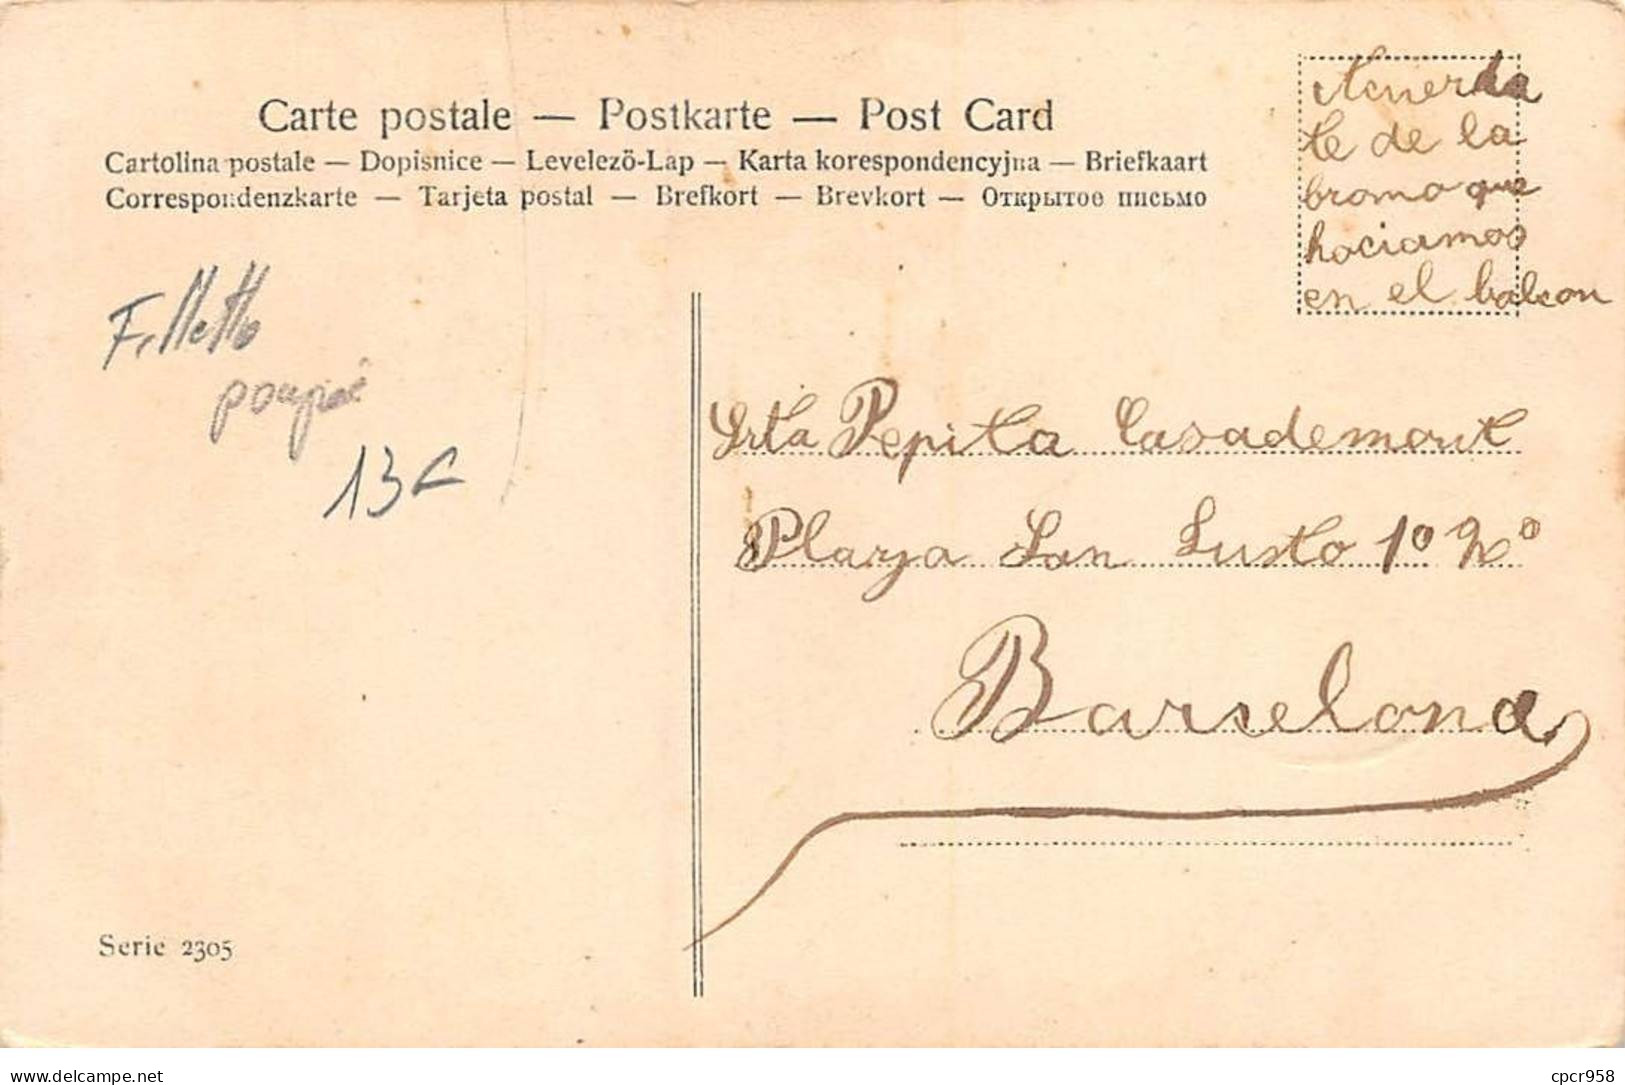 Carte postale — Postkarte — Post Card
Cartolina postale — Dopisnice — Levelezö-Lap — Karta korespondencyjna — Briefkaart
Correspondenzkarte — Tarjeta postal — Brefkort — Brevkort — Открытое письмо
Acuerda
te de la
broma que
haciamos
en el balcon
Fillette
poupée
13€
Srta Pepita Casademont
Plaza San Justo 1º 2º
Barselona
Serie 2305
delcampe.net
cpcr958